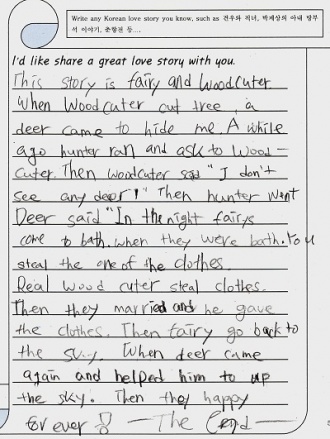 Write any Korean love story you know, such as 견우와 직녀, 박제상의 아내 망부
석 이야기, 춘향전 등...,
I'd like share a great love story with you.
This story is fairy and Woodcuter
When Woodcuter cut tree, a
deer came to hide me. A while
ago hunter ran and ask to Wood-
cuter. Then Woodcuter said "I don't
see any deer!" Then hunter went
Deer said "In the night fairys
come to bath. when they were bath. You
steal the one of the clothes.
Real Wood cuter steal clothes.
Then they married and he gave
the clothes. Then fairy go back to
the sky. When deer came
again and helped him to up
the sky. Then they happy
for ever !! —The End—